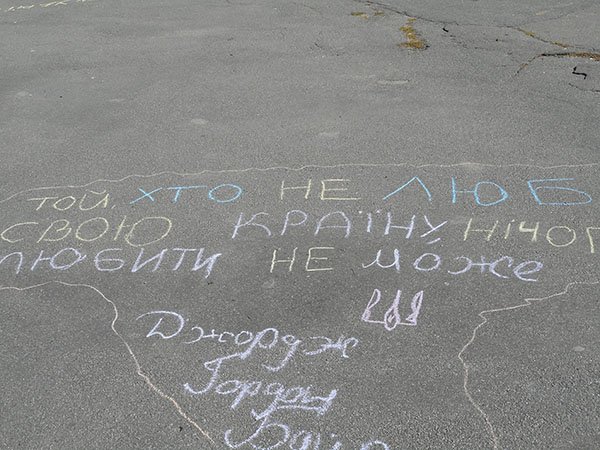 ТОЙ, ХТО НЕ ЛЮБ
СВОЮ КРАЇНУ НІЧОГ
ЛЮБИТИ НЕ МОЖЕ
Джордж
Гордон
Бай